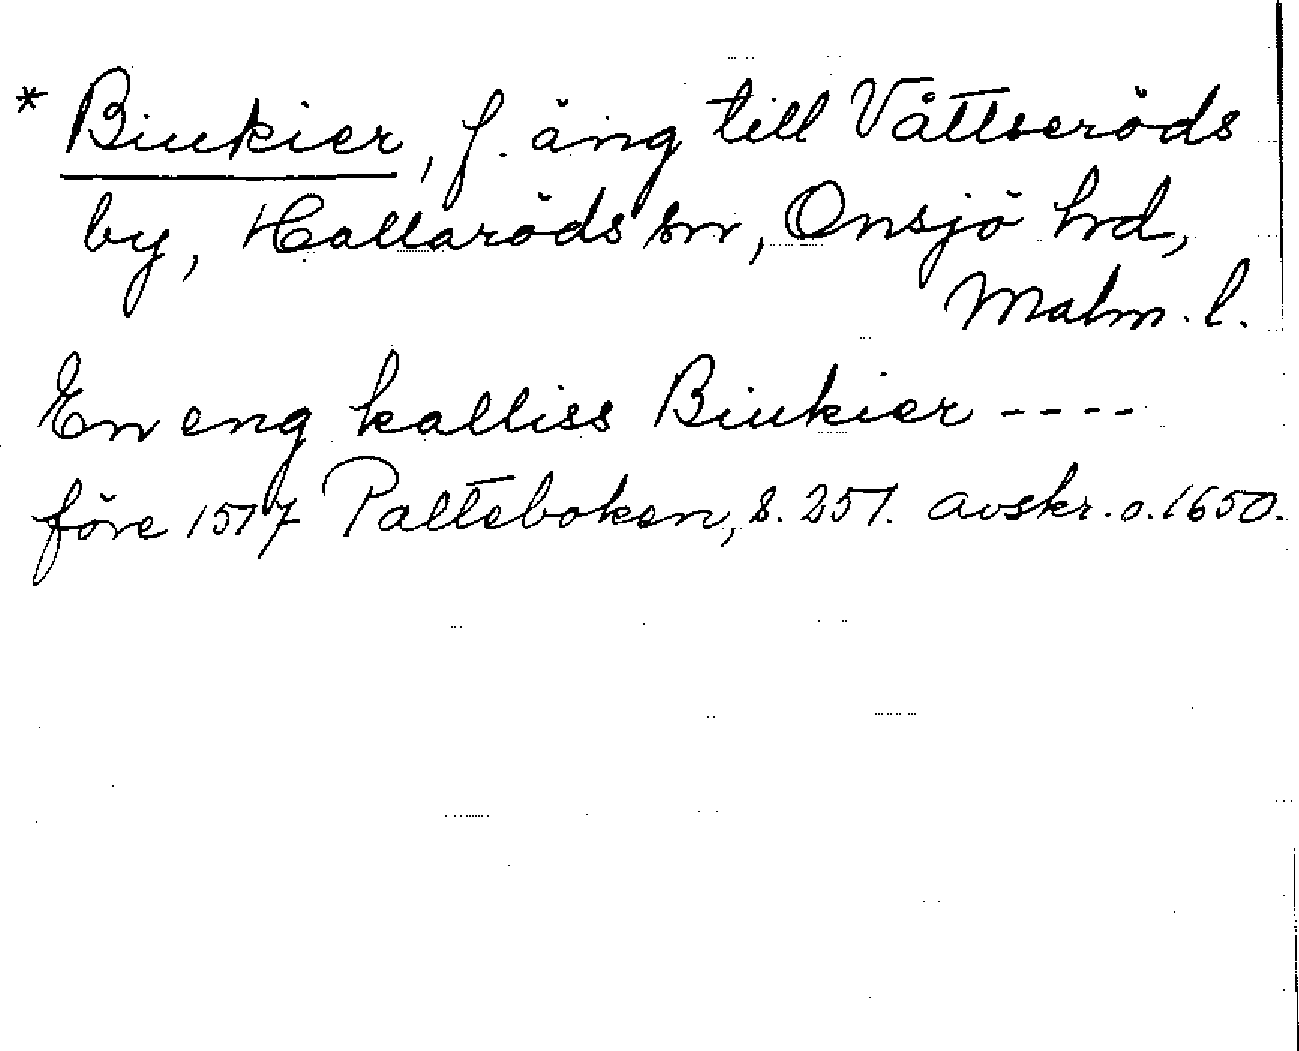 * Biukier, f. äng till Våttseröds
by, Hallaröds sn, Onsjö hrd,
Malm. l.
En eng kalliss Biukier ----
före 1517 Palteboken, s. 251. avskr. o. 1650.